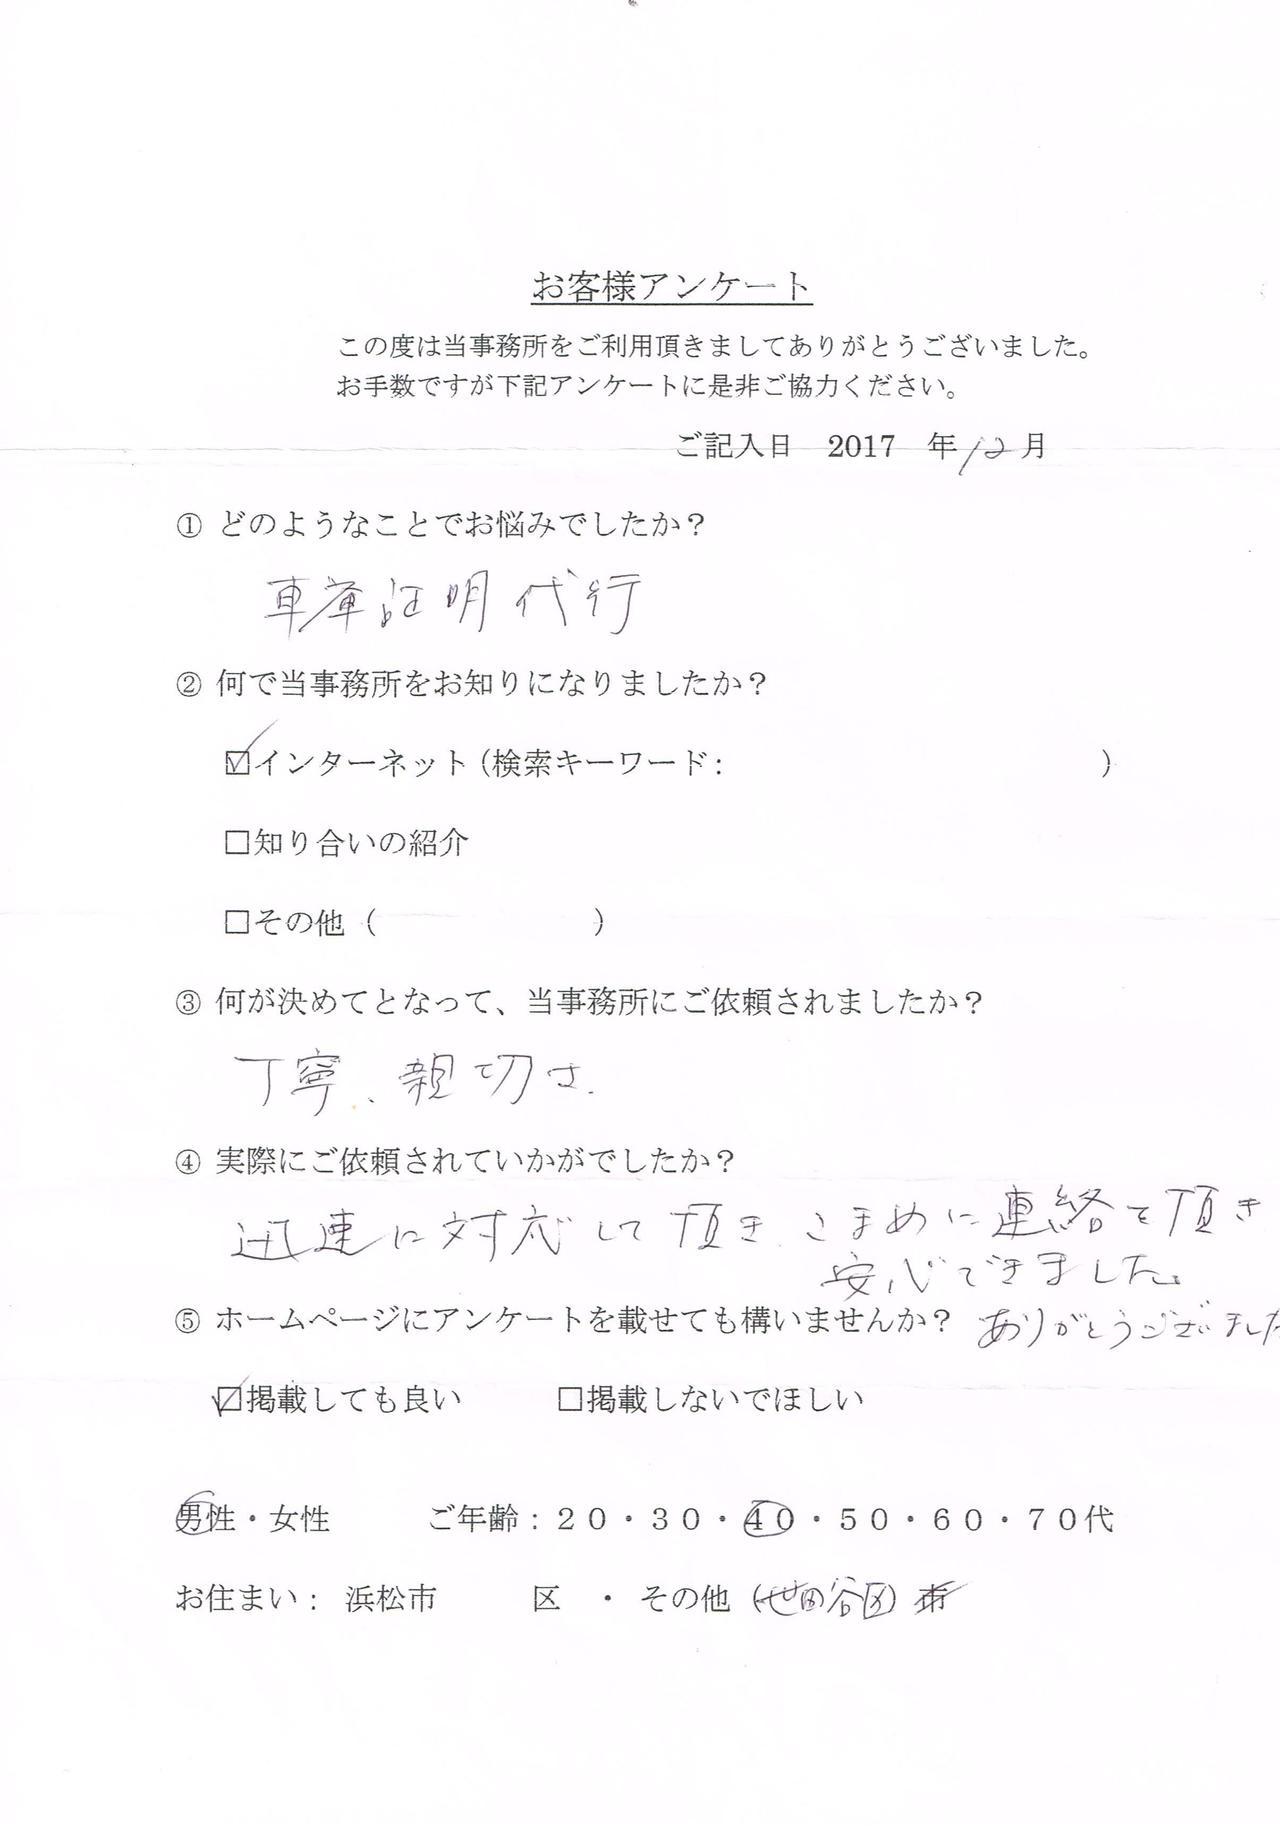 お客様アンケート
この度は当事務所をご利用頂きましてありがとうございました。
お手数ですが下記アンケートに是非ご協力ください。
ご記入日 2017 年 12 月
① どのようなことでお悩みでしたか？
車庫証明代行
② 何で当事務所をお知りになりましたか？
☑インターネット（検索キーワード： ）
□知り合いの紹介
□その他（ ）
③ 何が決めてとなって、当事務所にご依頼されましたか？
丁寧、親切さ.
④ 実際にご依頼されていかがでしたか？
迅速に対応して頂き こまめに連絡を頂き
安心できました。
⑤ ホームページにアンケートを載せても構いませんか？ ありがとうございました
☑掲載しても良い □掲載しないでほしい
男性・女性 ご年齢：２０・３０・４０・５０・６０・７０代
お住まい： 浜松市 区 ・ その他（世田谷区）市